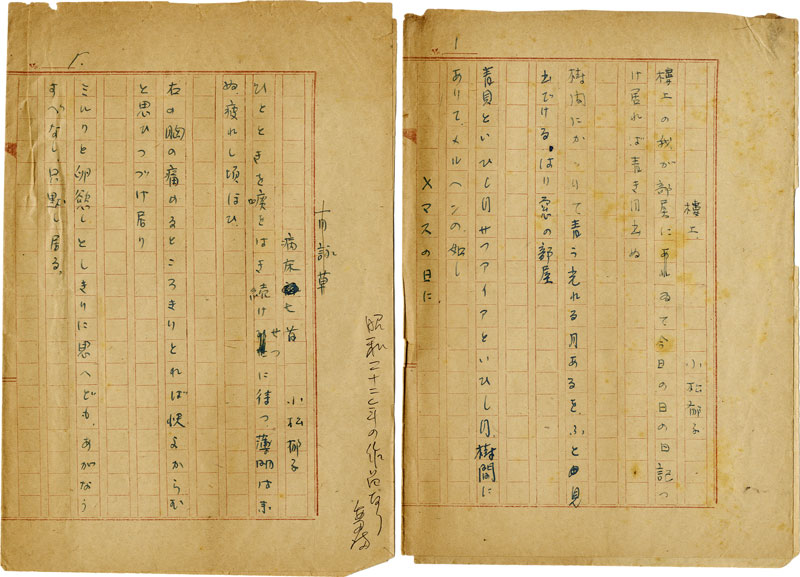 1
樓上
小松郁子
樓上の我が部屋にあれゐて今日の日の日記つ
け居れば青き月出ぬ
樹間にかゝりて青う光れる月あるを、ふと見
出でける。はり窓の部屋
青貝といひし月サファイアといひし月、樹間に
ありて、メルヘンの如し
×マスの日に
1.
有詠草
病床 七首
小松郁子
ひとときを痰をはき続け せつに待つ、薄明は未
ぬ疲れし頃ほひ
右の胸の痛めるところきりとれば快よからむ
と思ひつづけ居り
ミルクと卵慾しとしきりに思へども、あがなう
すべなし、只黙し居る。
昭和二十二年の作品なり